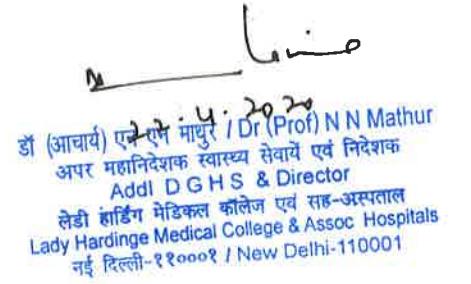 22.4.2020
डॉ (आचार्य) एन एन माथुर / Dr (Prof) N N Mathur
अपर महानिदेशक स्वास्थ्य सेवायें एवं निदेशक
Addl D G H S & Director
लेडी हार्डिंग मेडिकल कॉलेज एवं सह-अस्पताल
Lady Hardinge Medical College & Assoc Hospitals
नई दिल्ली-११०००१ / New Delhi-110001